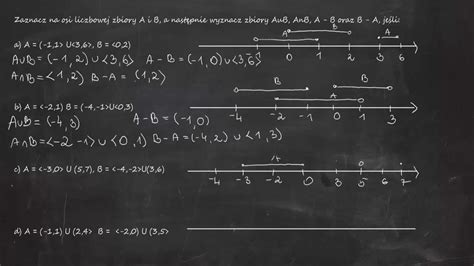 Zaznacz na osi liczbowej zbiory A i B, a następnie wyznacz zbiory AuB, AnB, A - B oraz B - A, jeśli:
a) A = (-1,1> U<3,6>, B = <0,2)
A∪B = (-1, 2) ∪ <3, 6> A - B = (-1, 0) ∪ <3, 6>
A∩B = <1, 2) B - A = (1, 2)
-1 0 1 2 3 4 5 6
A
B
A
b) A = <-2,1) B = (-4,-1>U<0,3)
A∪B = (-4, 3) A - B = (-1, 0)
A∩B = <-2 -1> ∪ <0, 1) B - A = (-4, 2) ∪ <1, 3)
B
B
A
-4 -3 -2 -1 0 1 2 3
c) A = <-3,0) U (5,7), B = <-4,-2>U(3,6)
A
-4 -3 -2 -1 0 3 5 6 7
d) A = (-1,1) U (2,4> B = <-2,0) U (3,5>